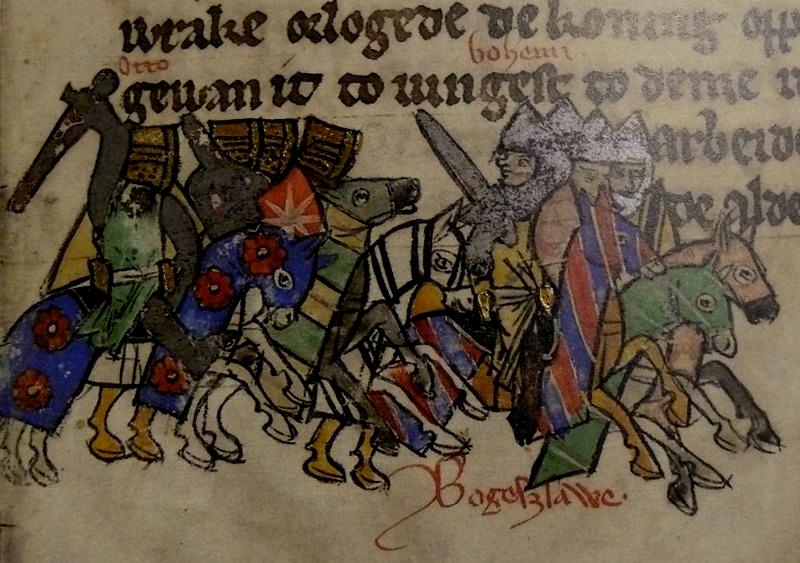 wrake orlogede de koning opp
Otto bohemi
gewan it to uingest to deme
arbeide
de alde
Bogeslawe.